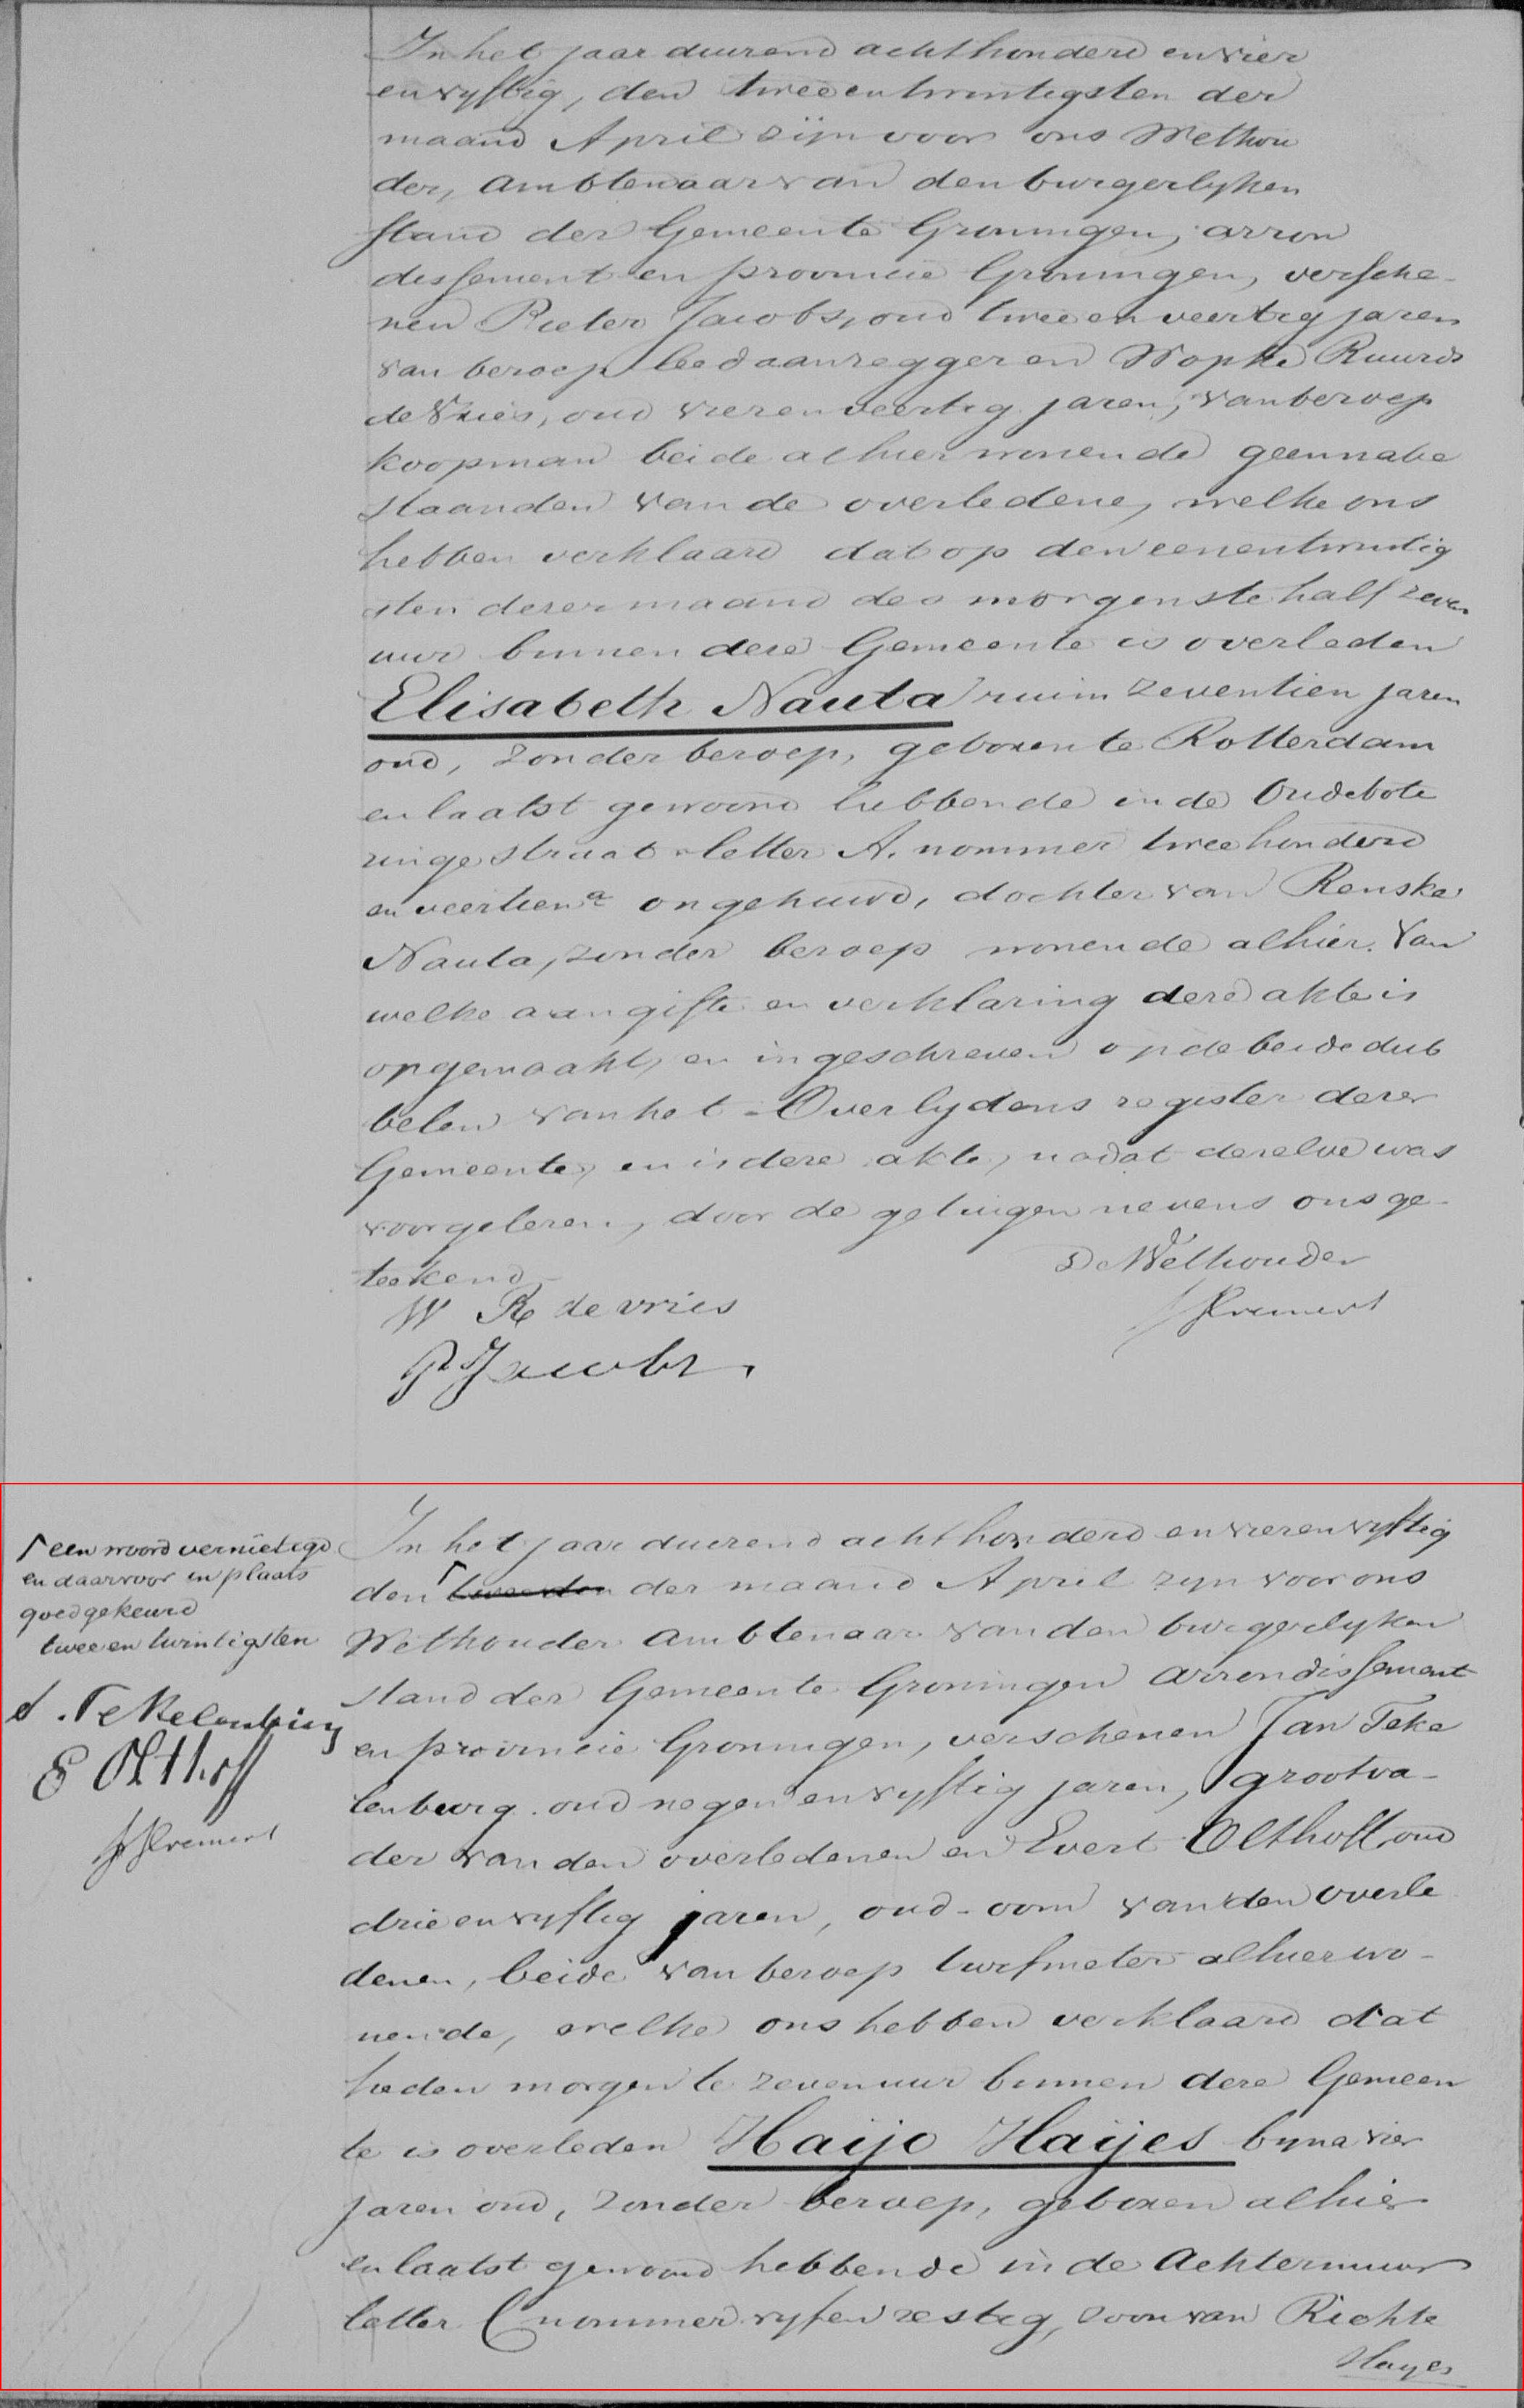 In het jaar duizend achthonderd en vier
en vyftig, den twee en twintigsten der
maand April zijn voor ons Wethou
der, Ambtenaar van den burgerlyken
stand der Gemeente Groningen, arron
dissement en provincie Groningen, versche-
nen Pieter Jacobs, oud twee en veertig jaren
van beroep leedaanzegger en Wopke Ruurds
de Vries, oud vier en veertig jaren, van beroep
koopman beide alhier wonende geen nabe
staanden van de overledene, welke ons
hebben verklaard dat op den een en twintig
sten dezer maand des morgens te half zeven
uur binnen deze Gemeente is overleden
Elisabeth Nauta ruim zeventien jaren
oud, zonder beroep, geboren te Rotterdam
en laatst gewoond hebbende in de Oudebote
ringe straat letter A. nommer twee honderd
en veertien a ongehuwd, dochter van Renske
Nauta, zonder beroep wonende alhier. Van
welke aangifte en verklaring deze akte is
opgemaakt, en ingeschreven op de beide dub
belen van het Overlydens register dezer
Gemeente, en is deze akte, nadat dezelve was
voorgelezen, door de getuigen nevens ons ge-
teekend
De Wethouder
W R de vries
P Jacobs
┌ een woord vernietigd
en daarvoor in plaats
goedgekeurd
twee en twintigsten
J. Tekelenburg
E Olthoff
In het jaar duizend acht honderd en vier en vyftig
den ┌ tweeden der maand April zyn voor ons
Wethouder Ambtenaar van den burgerlyken
stand der Gemeente Groningen arrondissement
en provincie Groningen, verschenen Jan Teke
lenburg oud negen en vyftig jaren, grootva-
der van den overledenen en Evert Olthoff, oud
drie en vyftig jaren, oud-oom van den overle
denen, beide van beroep turfmeter alhier wo-
nende, welke ons hebben verklaard dat
heden morgen te zeven uur binnen deze Gemeen
te is overleden Haijo Haijes byna vier
jaren oud, zonder beroep, geboren alhier
en laatst gewoond hebbende in de Achtermuur
letter C nommer vyf en zestig, zoon van Richte
Hayes